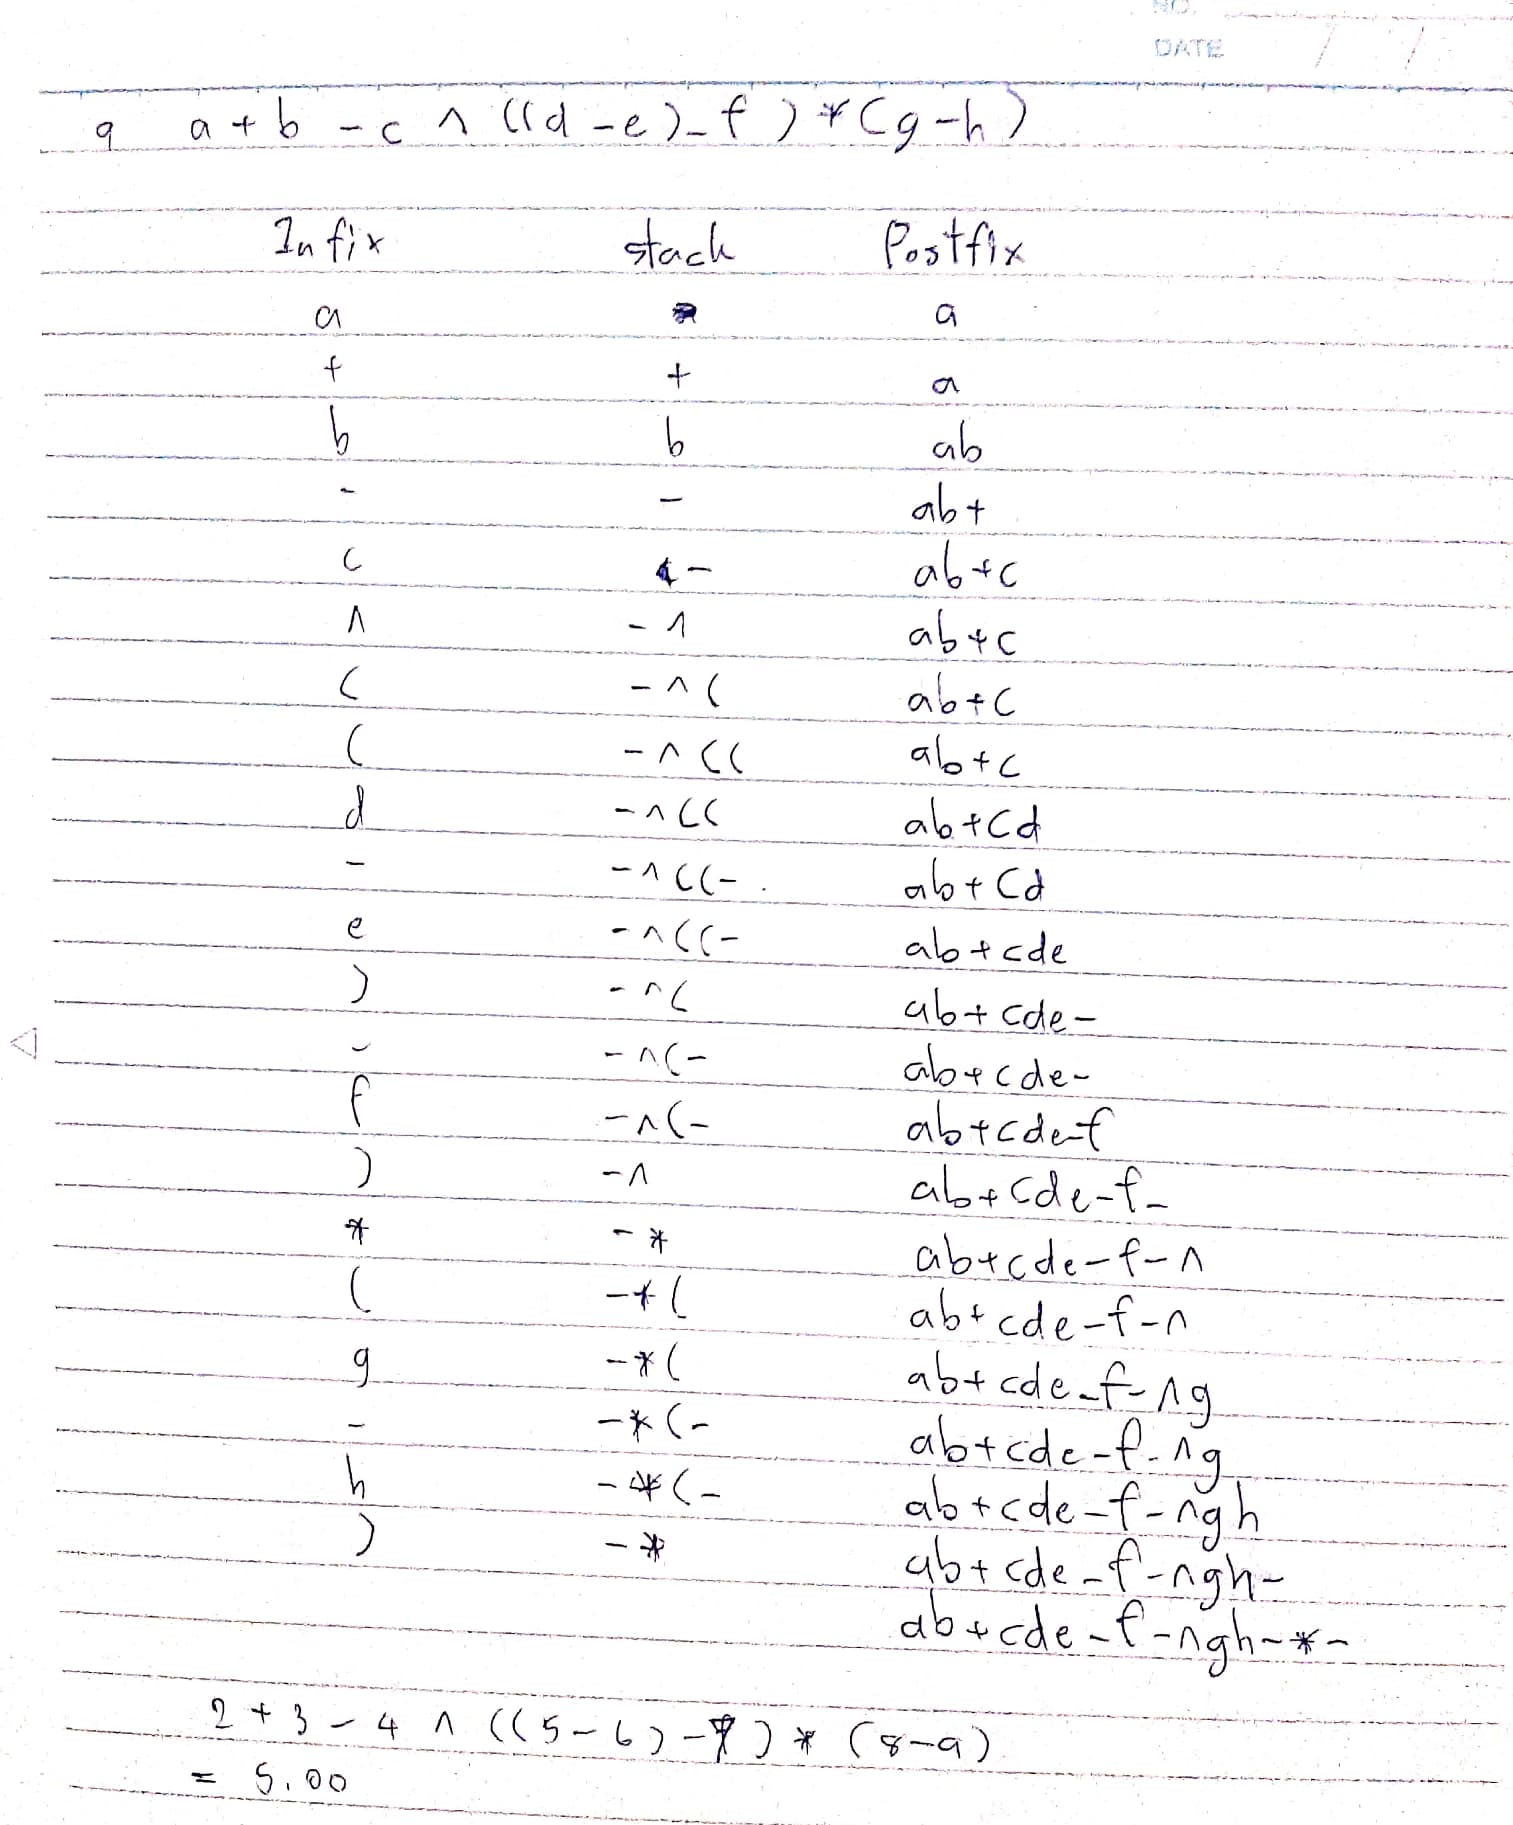 NO.
DATE / /
9 a + b - c ^ ((d - e) - f ) * (g - h)
Infix stack Postfix
a a
+ + a
b b ab
- - ab+
c - ab+c
^ - ^ ab+c
( - ^ ( ab+c
( - ^ (( ab+c
d - ^ (( ab+cd
- - ^ ((- ab+cd
e - ^ ((- ab+cde
) - ^ ( ab+cde-
- - ^ (- ab+cde-
f - ^ (- ab+cde-f
) - ^ ab+cde-f-
* - * ab+cde-f-^
( - * ( ab+cde-f-^
g - * ( ab+cde-f-^g
- - * (- ab+cde-f-^g
h - * (- ab+cde-f-^gh
) - * ab+cde-f-^gh-
ab+cde-f-^gh-*-
2 + 3 - 4 ^ ((5 - 6) - 7) * (8 - 9)
= 5.00